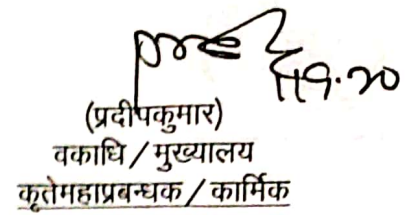 (प्रदीपकुमार)
वकाधि / मुख्यालय
कृतेमहाप्रबन्धक / कार्मिक